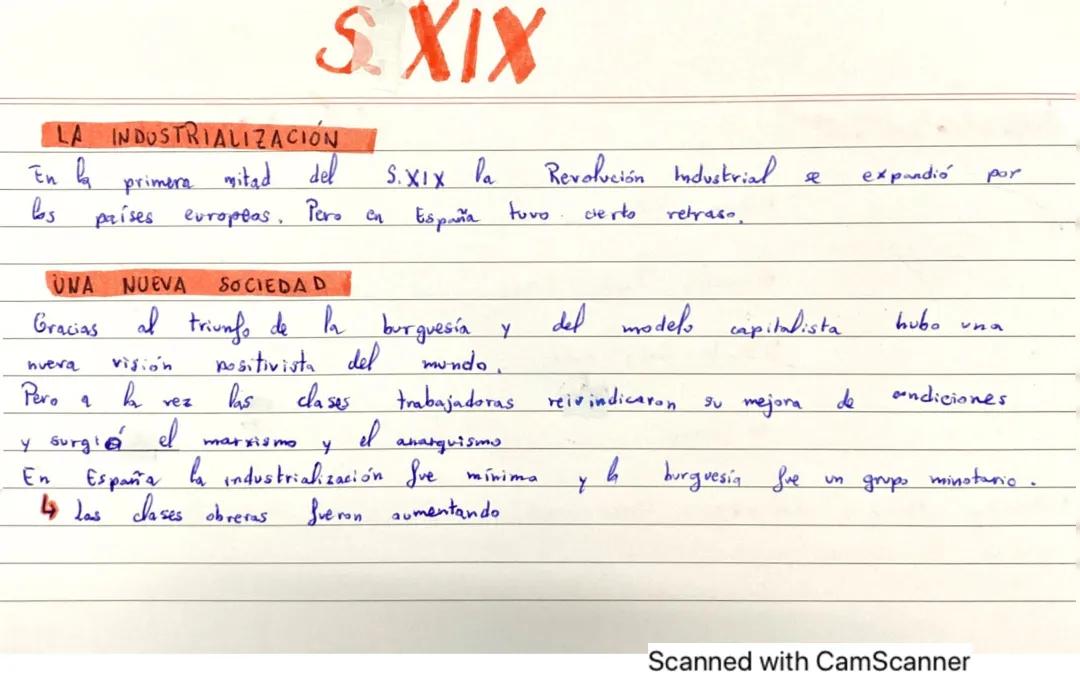 S. XIX
LA INDUSTRIALIZACIÓN
En la primera mitad del S.XIX la Revolución Industrial se expandió por
los países europeas. Pero en España tuvo cierto retraso.
UNA NUEVA SOCIEDAD
Gracias al triunfo de la burguesía y del modelo capitalista hubo una
nueva visión positivista del mundo.
Pero a la vez las clases trabajadoras reivindicaron su mejora de condiciones
y surgió el marxismo y el anarquismo
En España la industrialización fue mínima y la burguesía fue un grupo minotario.
↳ Las clases obreras fueron aumentando
Scanned with CamScanner